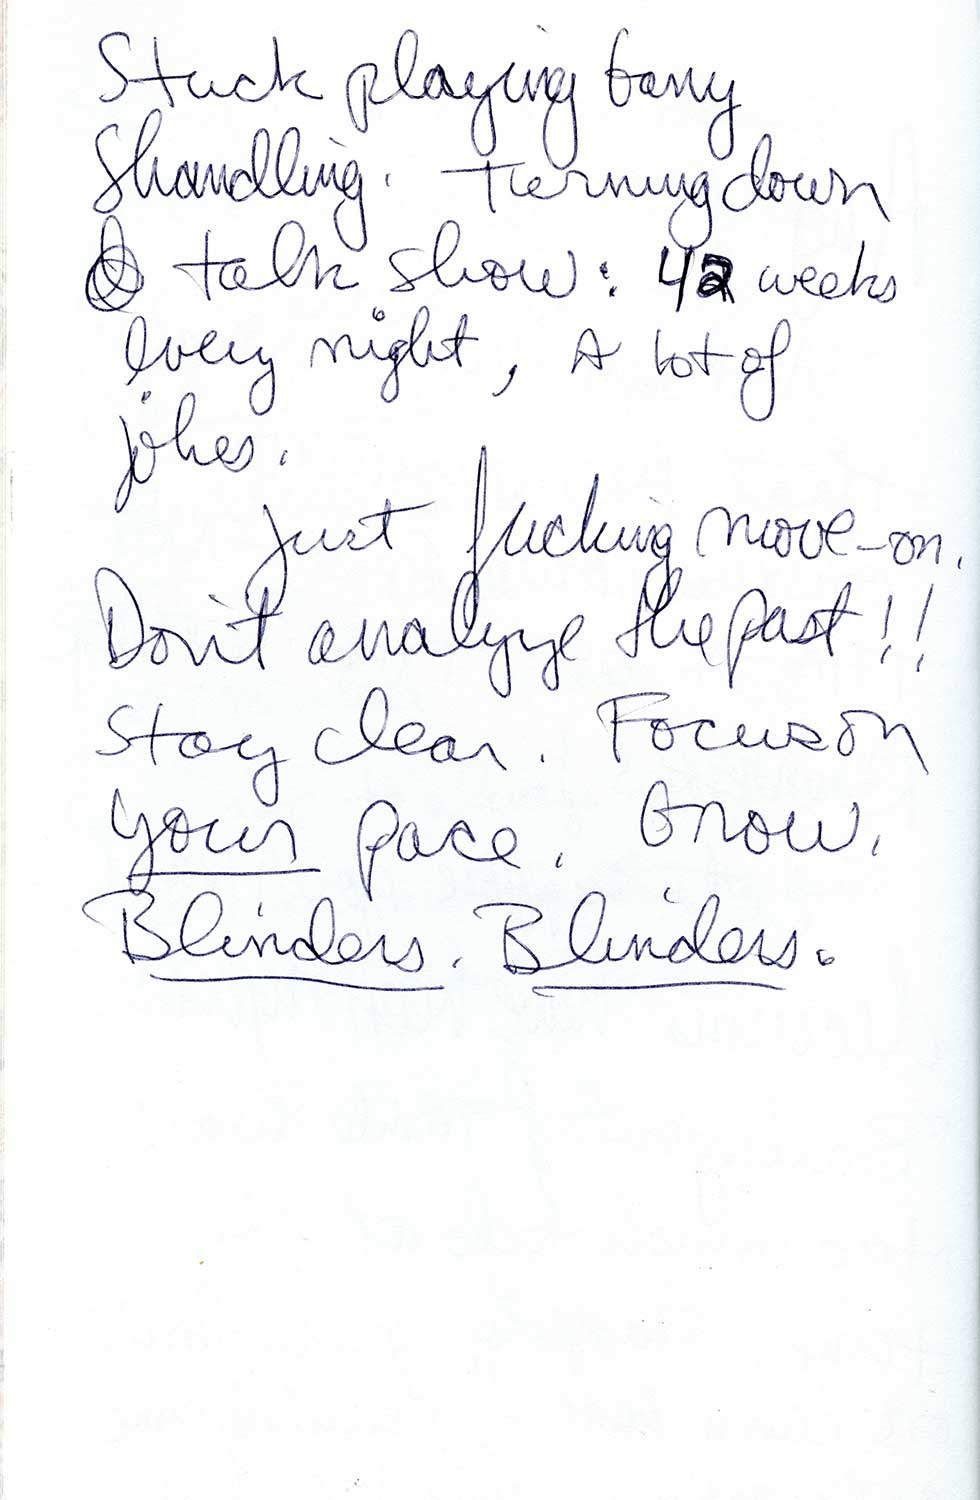 Stuck playing Garry
Shandling. Turning down
talk show: 42 weeks
every night, A lot of
jokes.
Just fucking move-on.
Don't analyze the past!!
Stay clear. Focus on
your pace. Grow.
Blinders. Blinders.